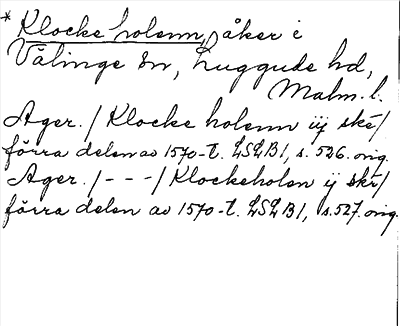 * Klocke holenn, åker i
Välinge sn, Luggude hd,
Malm. l.
Ager. / Klocke holenn iij skē/
förra delen av 1570-t. LSLB1, s. 526. orig.
Ager. / - - - / Klockeholen ij skē/
förra delen av 1570-t. LSLB1, s. 527. orig.